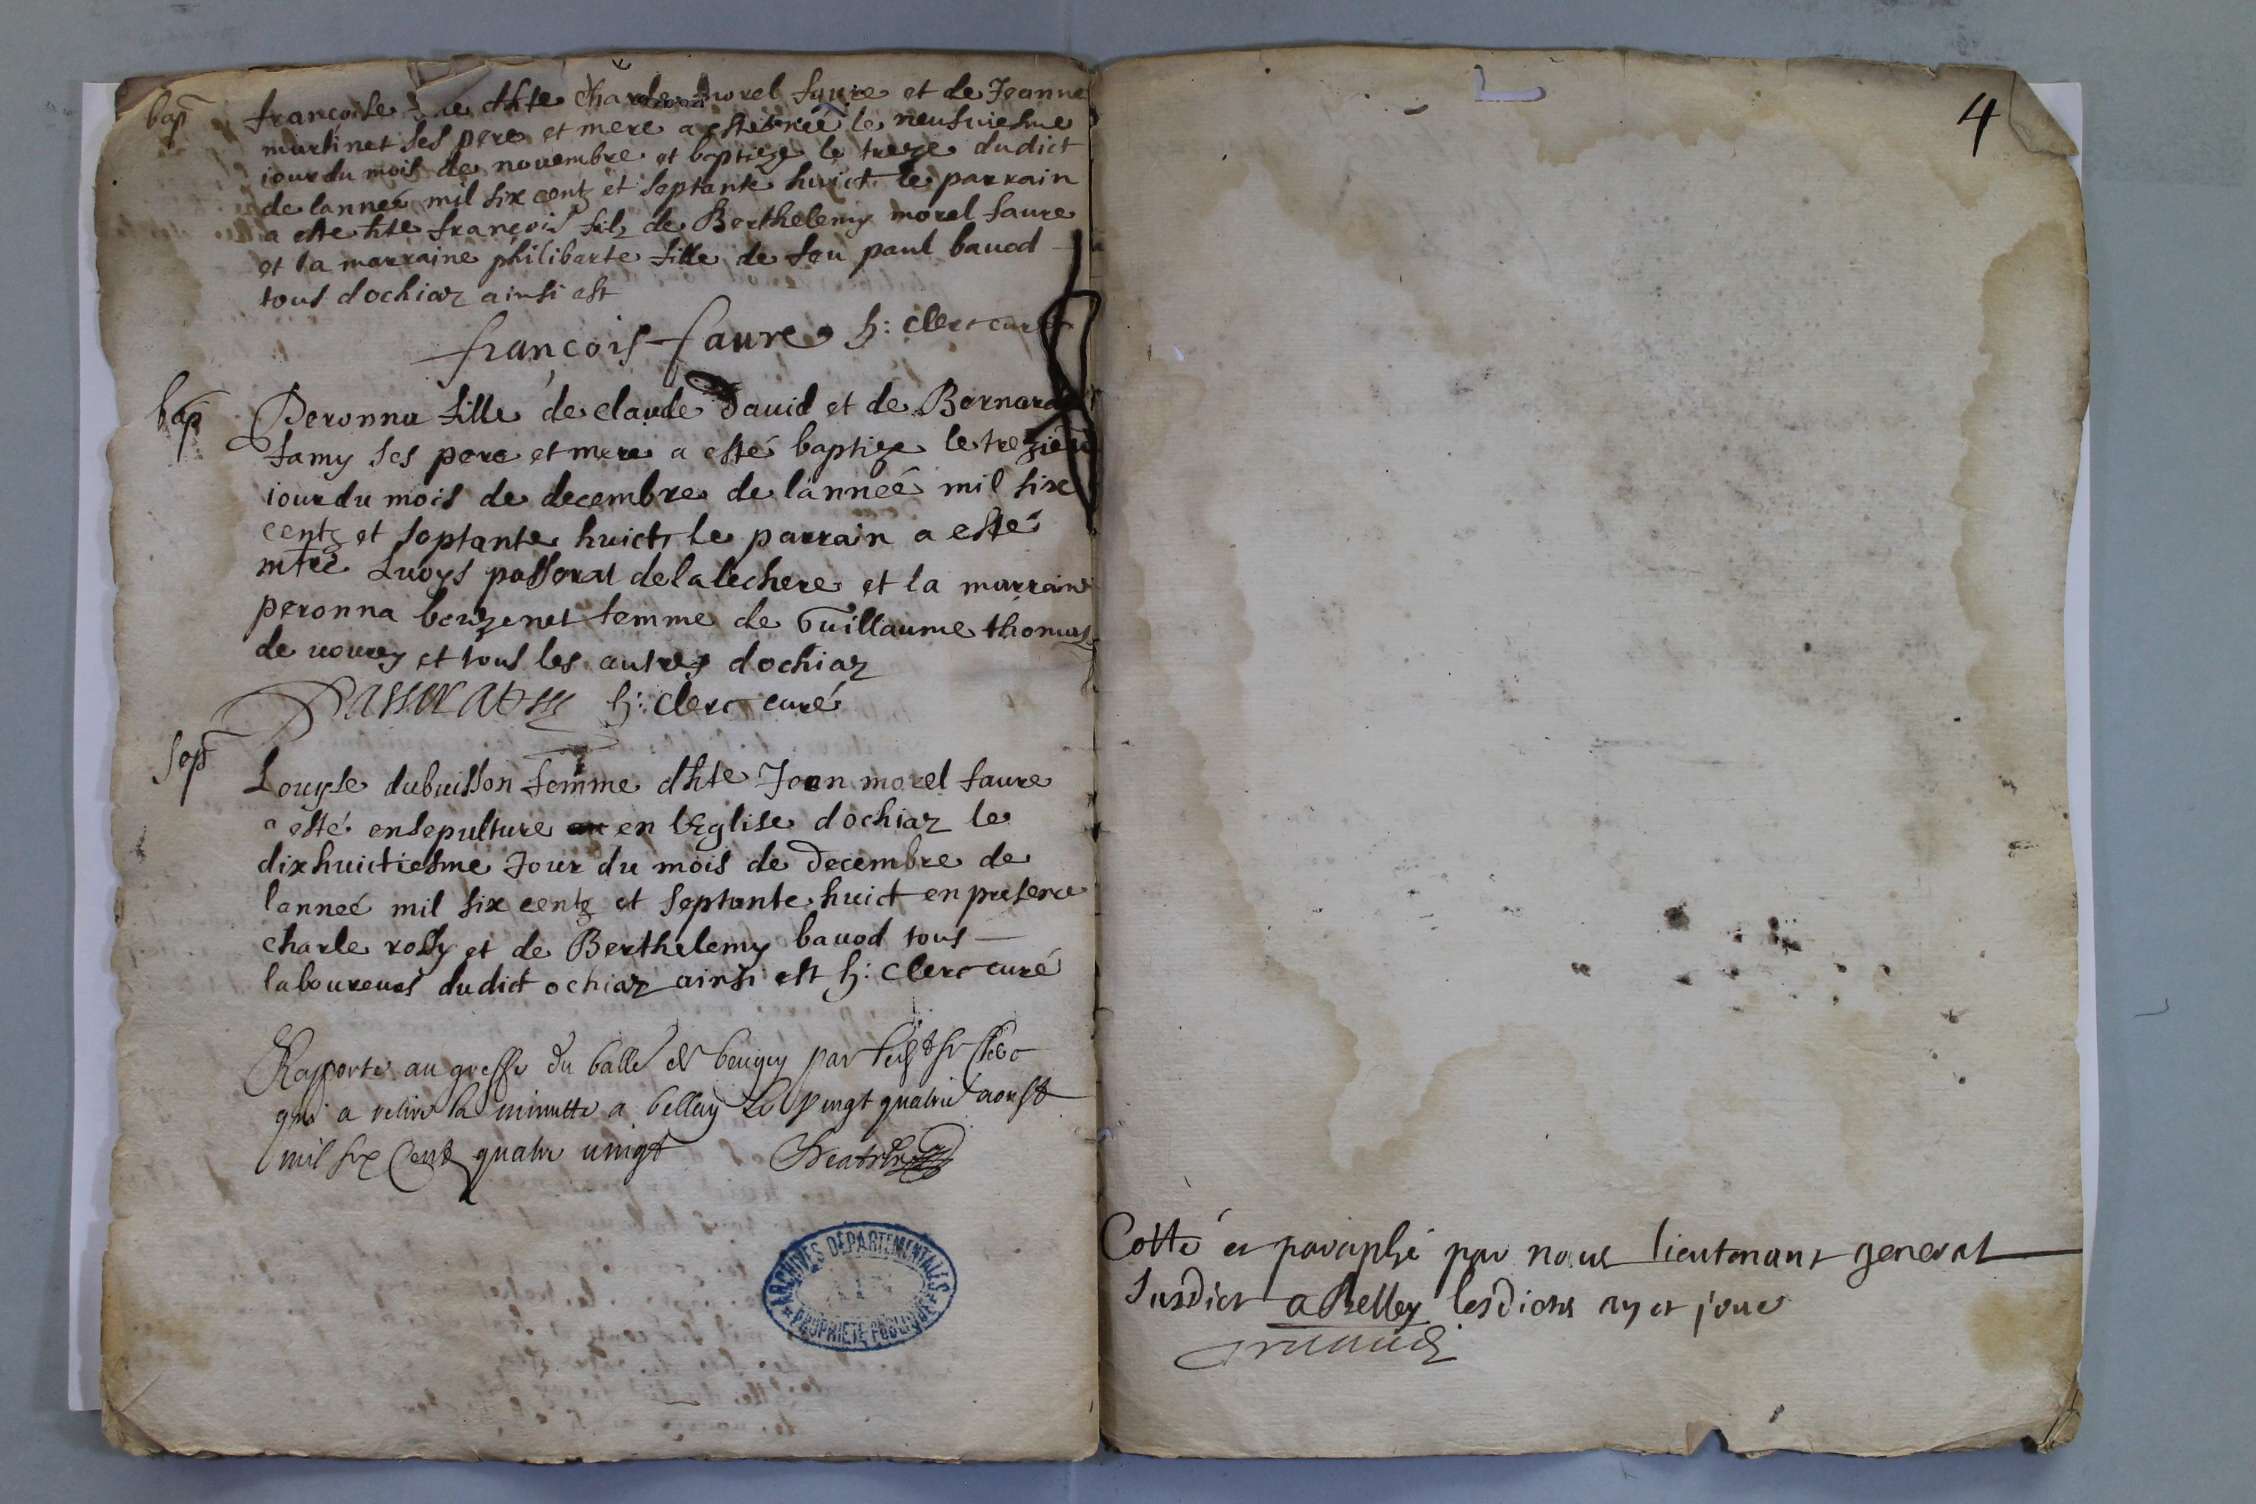 bap
francoise dhte Charle morel faure et de Jeanne
martinet ses pere et mere a esté neé le neufuiesme
iour du mois de nouembre et baptize le treze dudict
de lanneé mil six centz et septante huict le parrain
a este hte françois filz de Berthelemy morel faure
et la marraine philibarte fille de feu paul bauod
tous dochiaz ainsi est
françois faure h: clerc curé
bap
Peronna fille de claude Dauid et de Bernarde
famy ses pere et mere a esté baptize le treziem
iour du mois de decembre de lanneé mil six
centz et septante huict le parrain a esté
mtre Luoys passerat de la lechere et la marraine
peronna bouzenet femme de Guillaume thomas
de uourey et tous les autres dochiaz
h: clerc curé
sep
Louyse dubuisson femme dhte Jean morel faure
a esté ensepulture en lEglise dochiaz le
dixhuictiesme Jour du mois de Decembre de
lanneé mil six centz et septante huict en presence
charle rossy et de Berthelemy bauod tous
laboureurs dudict ochiaz ainsi est h: clerc curé
Rapporté au greffe du balle de beugey par led sr Clerc
qui a retire la minutte a belley le vingt quatrie aoust
mil six Cent quatre uingt
ARCHIVES DÉPARTEMENTALES
AIN
PROPRIÉTÉ PUBLIQUE
4
Cotté et paraphé par nous lieutenant general
susdict a Belley lesdicts an et jour